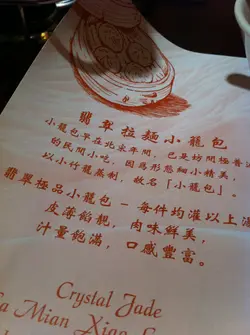 翡翠拉麵小籠包
小籠包早在北宋年間，已是坊間極普
的民間小吃。因為形態細小精美，
以小竹籠蒸制，故名「小籠包」。
翡翠極品小籠包 - 每件均灌以上
皮薄餡靚，肉味鮮美，
汁量飽滿，口感豐富。
Crystal Jade
La Mian Xiao